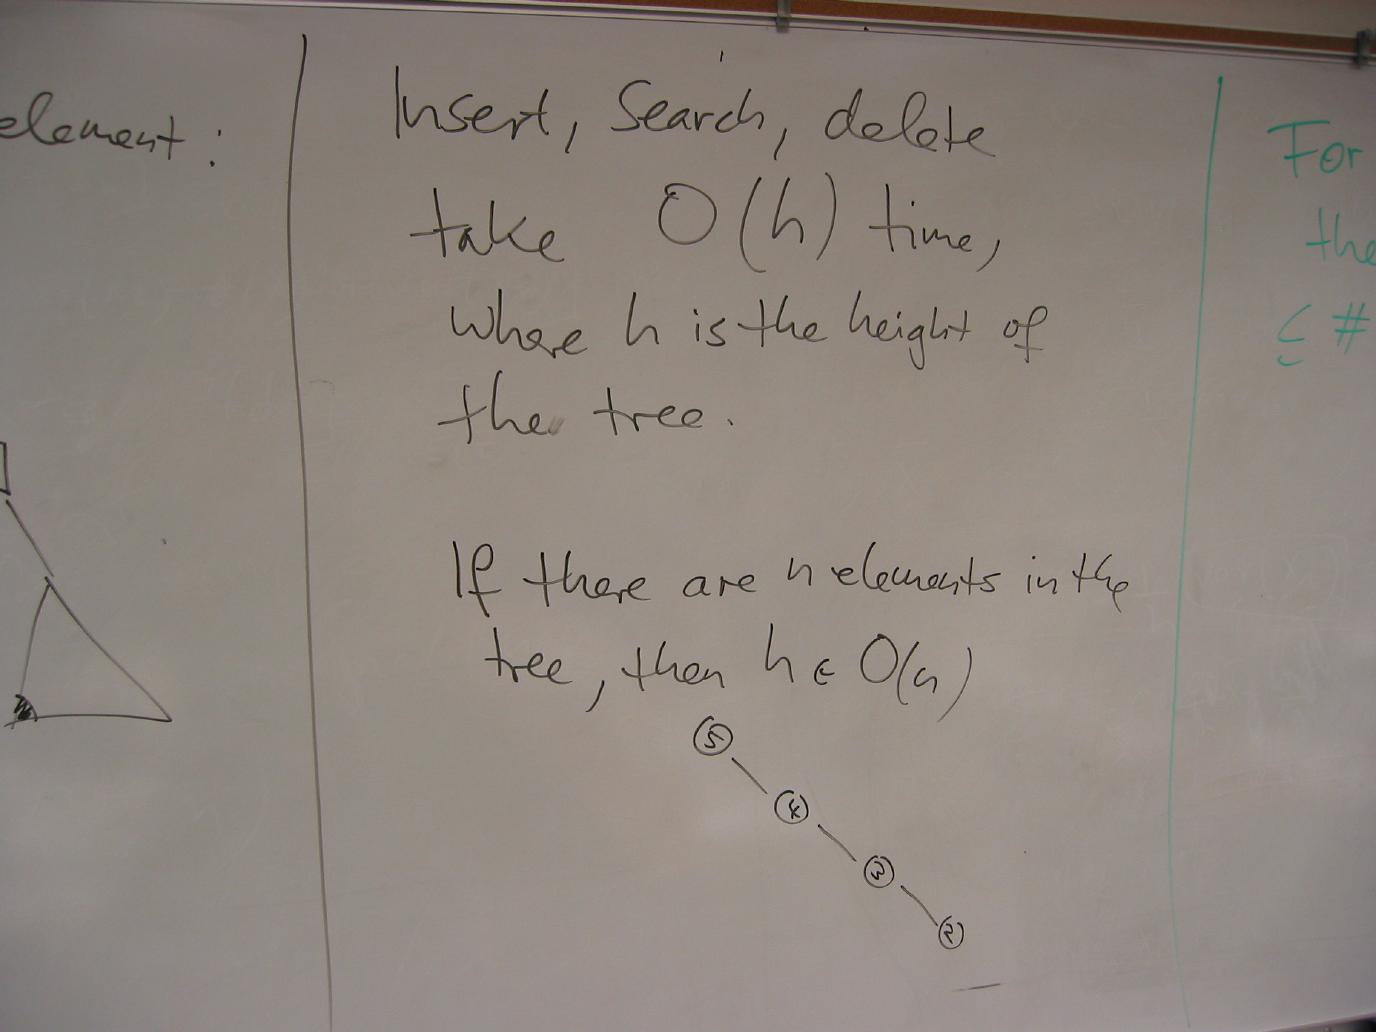 element:
Insert, Search, delete
take O(h) time,
where h is the height of
the tree.
If there are n elements in the
tree, then h ∈ O(n)
5
4
3
2
For
the
≤ #